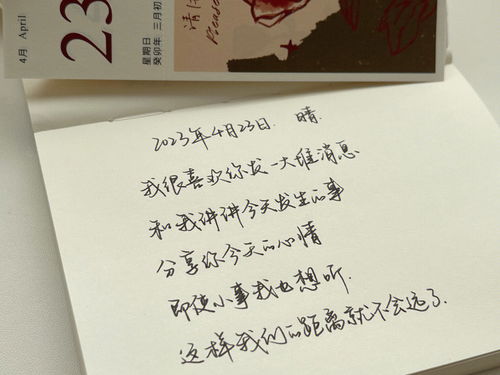 4月 April
23
星期日
癸卯年 三月初
2023年4月23日. 晴.
我很喜欢你发一大堆消息
和我讲讲今天发生的事
分享你今天的心情
即使小事我也想听.
这样我们的距离就不会远了.